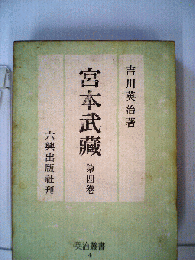 吉川英治著
宮本武藏
第四巻
六興出版社刊
英治叢書
4